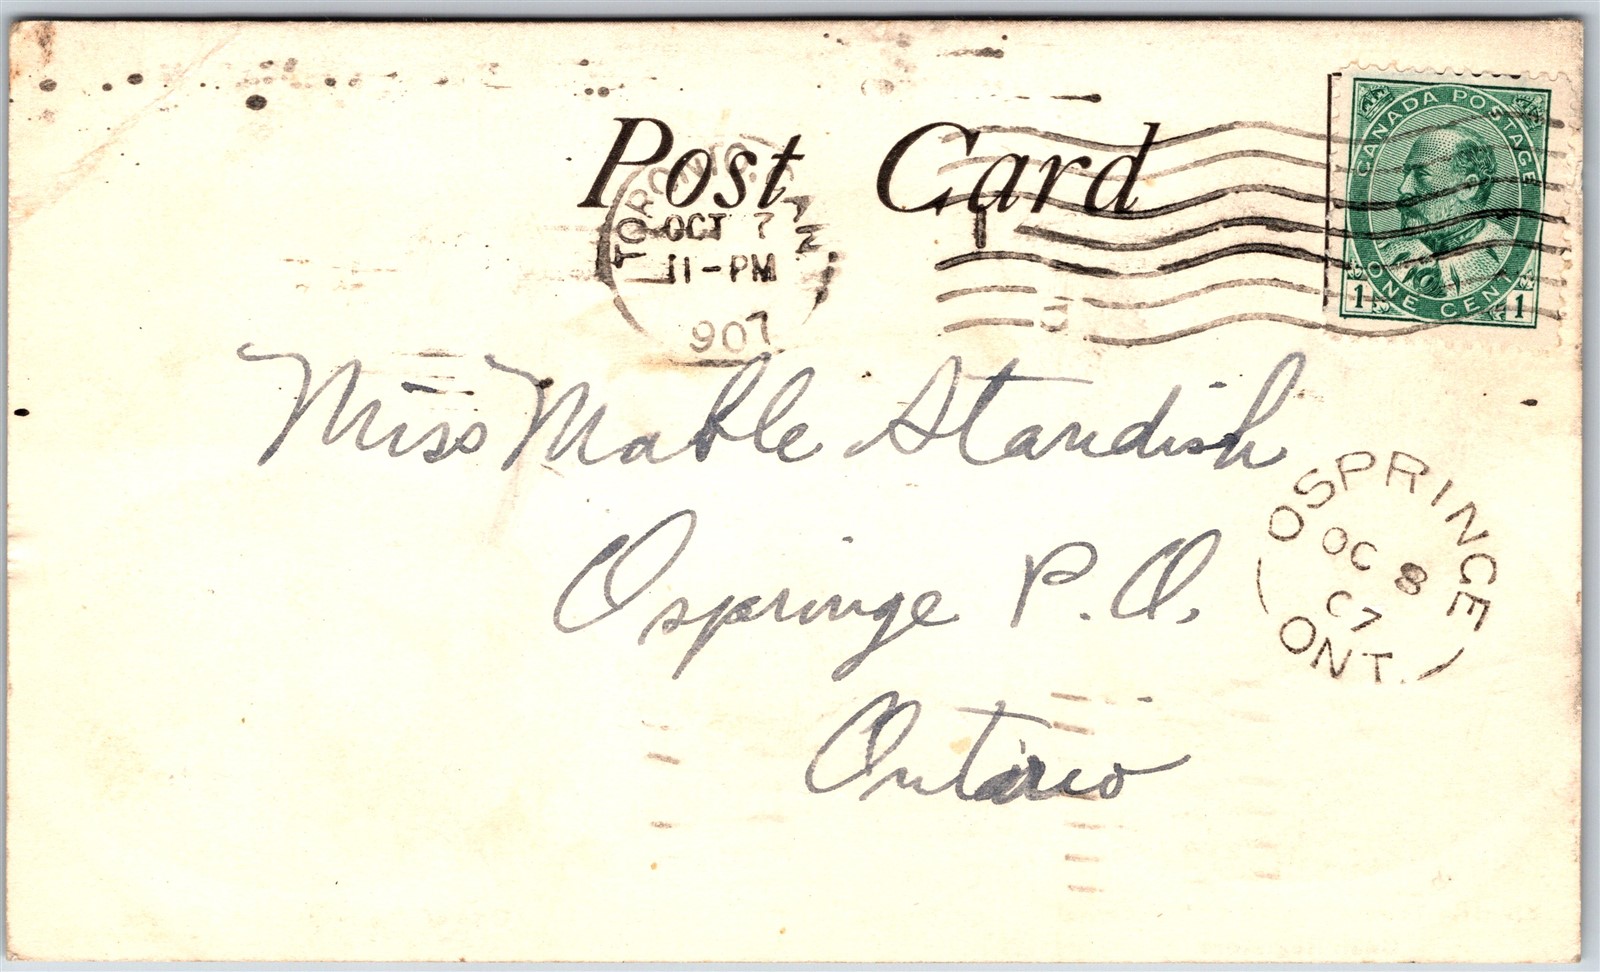 Post Card
CANADA POSTAGE
ONE CENT
1 1
TORONTO, CAN
OCT 7
11-PM
907
Miss Mable Standish
Ospringe P.O.
Ontario
OSPRINGE
OC 8
07
ONT.